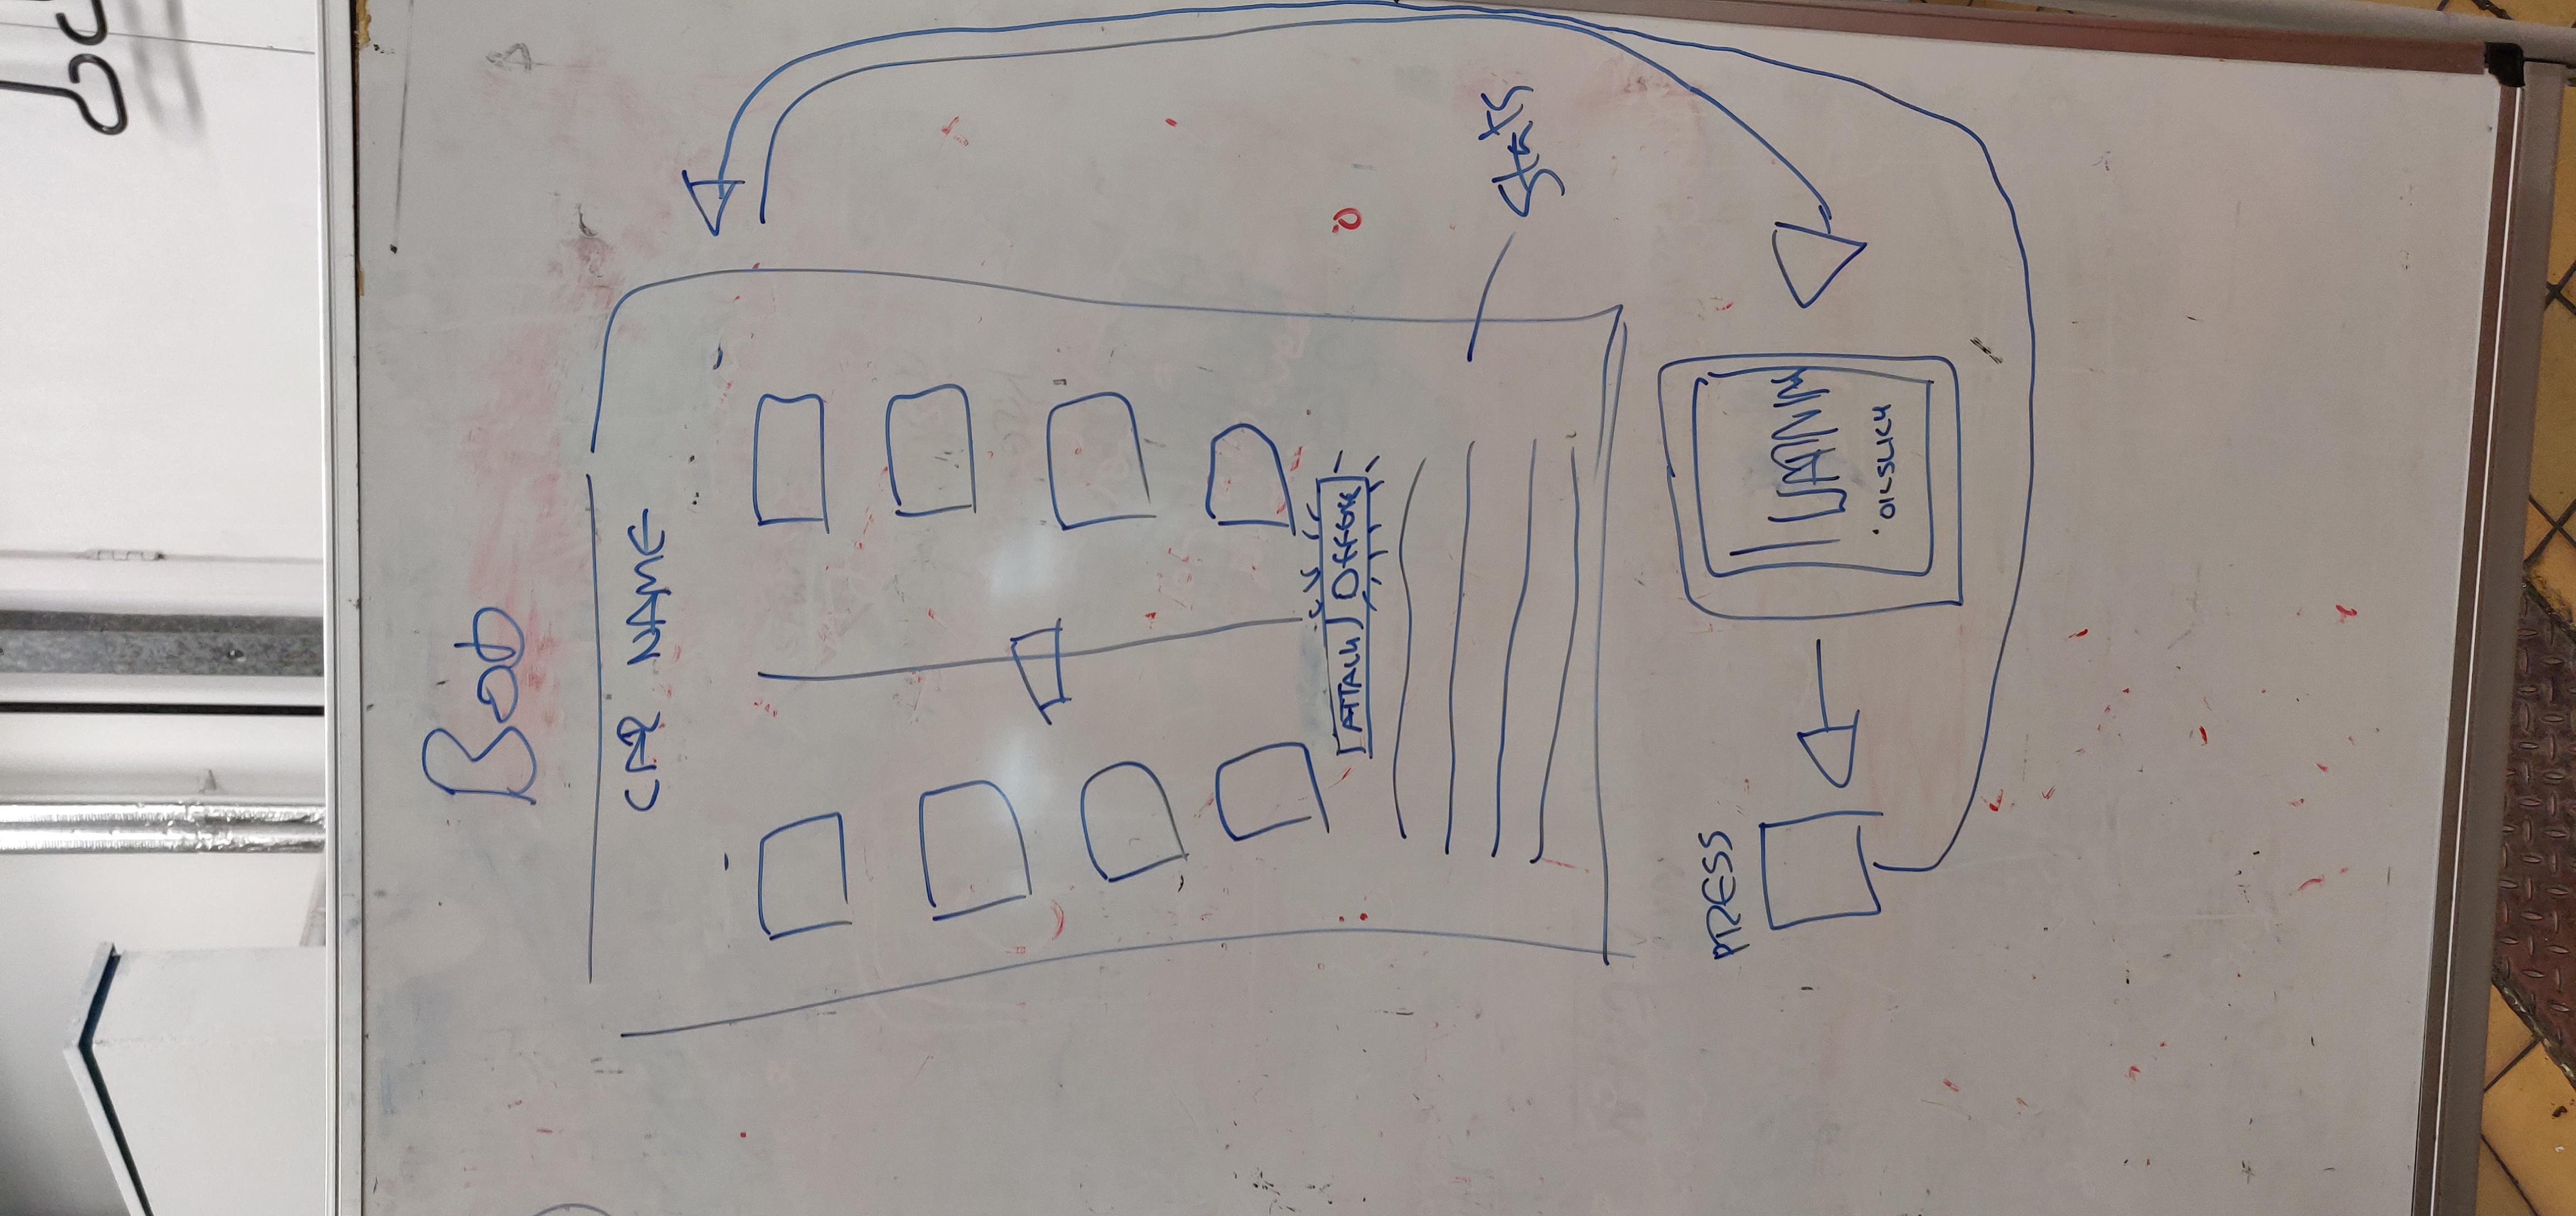 Bob
CAR NAME
ATTACK
Stats
PRESS
OILSLICK